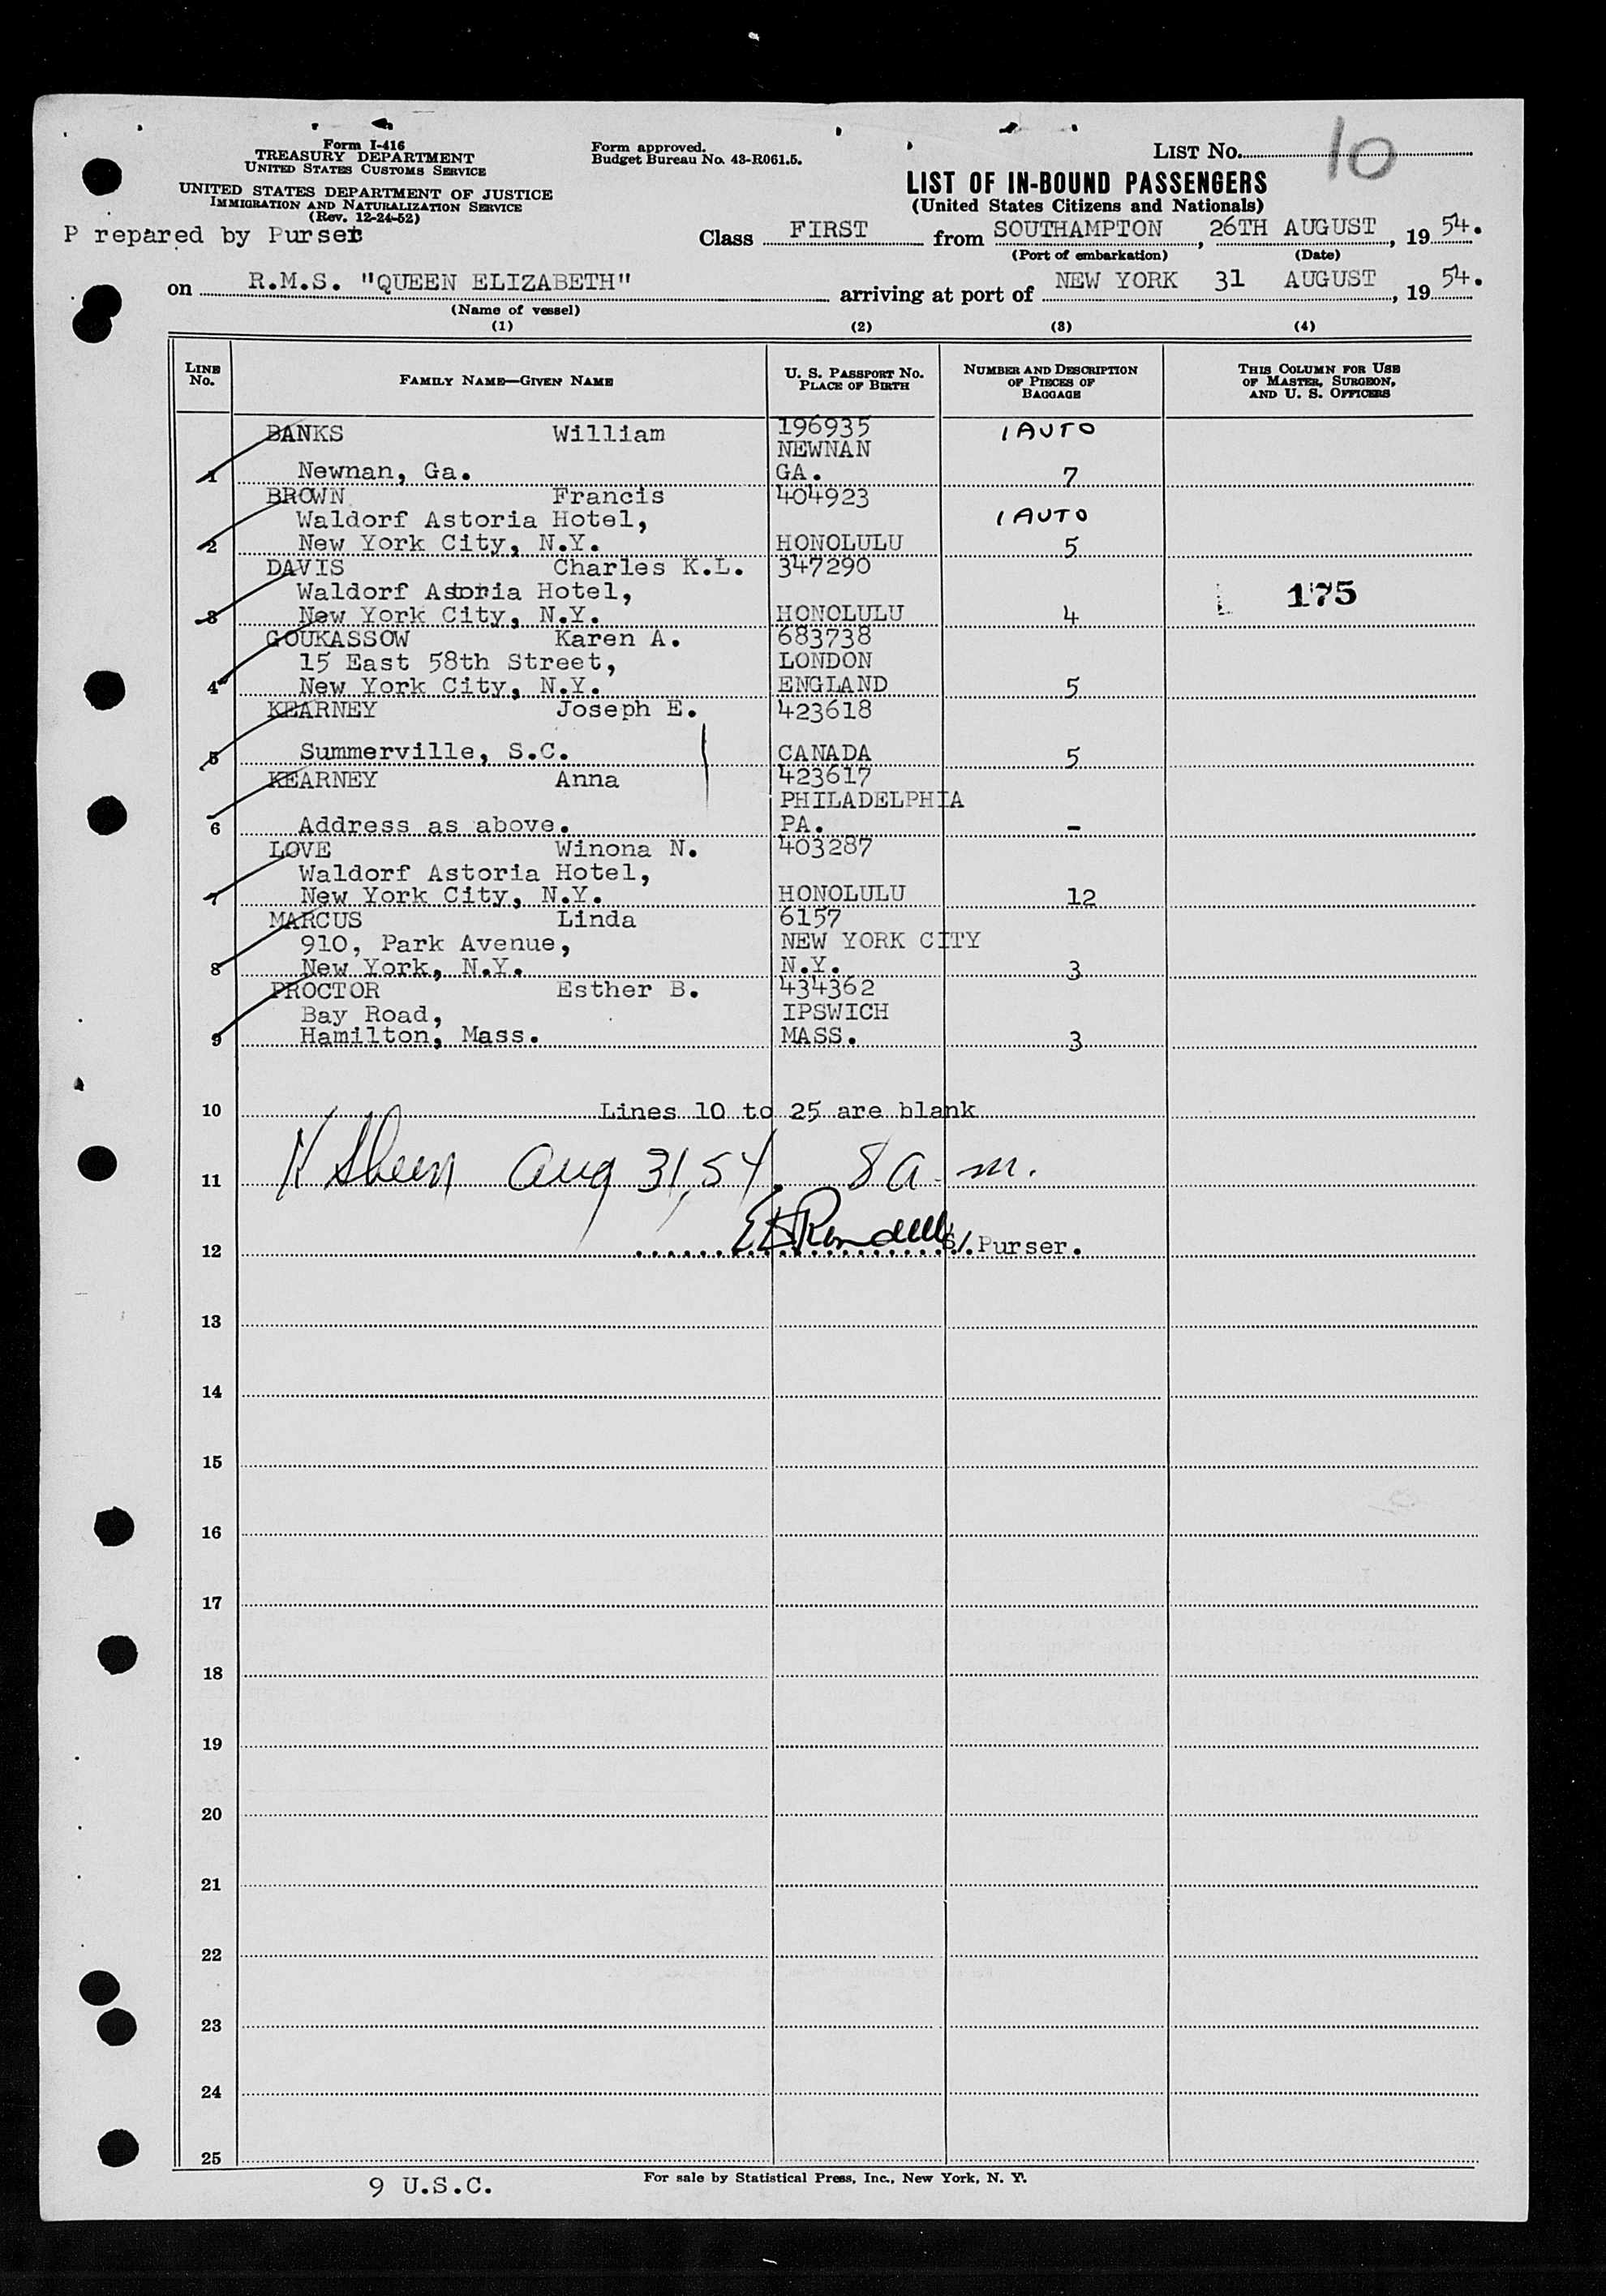 Form I-416
TREASURY DEPARTMENT
UNITED STATES CUSTOMS SERVICE
UNITED STATES DEPARTMENT OF JUSTICE
IMMIGRATION AND NATURALIZATION SERVICE
(Rev. 12-24-52)
P repared by Purser
Form approved.
Budget Bureau No. 43-R061.5.
LIST No. 10
LIST OF IN-BOUND PASSENGERS
(United States Citizens and Nationals)
Class FIRST from SOUTHAMPTON, 26TH AUGUST, 19 54.
(Port of embarkation) (Date)
on R.M.S. "QUEEN ELIZABETH" arriving at port of NEW YORK 31 AUGUST, 19 54.
(Name of vessel)
(1) (2) (3) (4)
LINE No. FAMILY NAME—GIVEN NAME U. S. PASSPORT No. PLACE OF BIRTH NUMBER AND DESCRIPTION OF PIECES OF BAGGAGE THIS COLUMN FOR USE OF MASTER, SURGEON, AND U. S. OFFICERS
BANKS William 196935 1 AUTO
NEWNAN
1 Newnan, Ga. GA. 7
BROWN Francis 404923
Waldorf Astoria Hotel, 1 AUTO
2 New York City, N.Y. HONOLULU 5
DAVIS Charles K.L. 347290
Waldorf Astoria Hotel, 175
3 New York City, N.Y. HONOLULU 4
GOUKASSOW Karen A. 683738
15 East 58th Street, LONDON
4 New York City, N.Y. ENGLAND 5
KEARNEY Joseph E. 423618
5 Summerville, S.C. CANADA 5
KEARNEY Anna 423617
PHILADELPHIA
6 Address as above. PA. -
LOVE Winona N. 403287
Waldorf Astoria Hotel,
7 New York City, N.Y. HONOLULU 12
MARCUS Linda 6157
910, Park Avenue, NEW YORK CITY
8 New York, N.Y. N.Y. 3
PROCTOR Esther B. 434362
Bay Road, IPSWICH
9 Hamilton, Mass. MASS. 3
10 Lines 10 to 25 are blank
11 Aug 31, 54. 8 a.m.
12 S/.Purser.
13
14
15
16
17
18
19
20
21
22
23
24
25
9 U.S.C. For sale by Statistical Press, Inc., New York, N. Y.